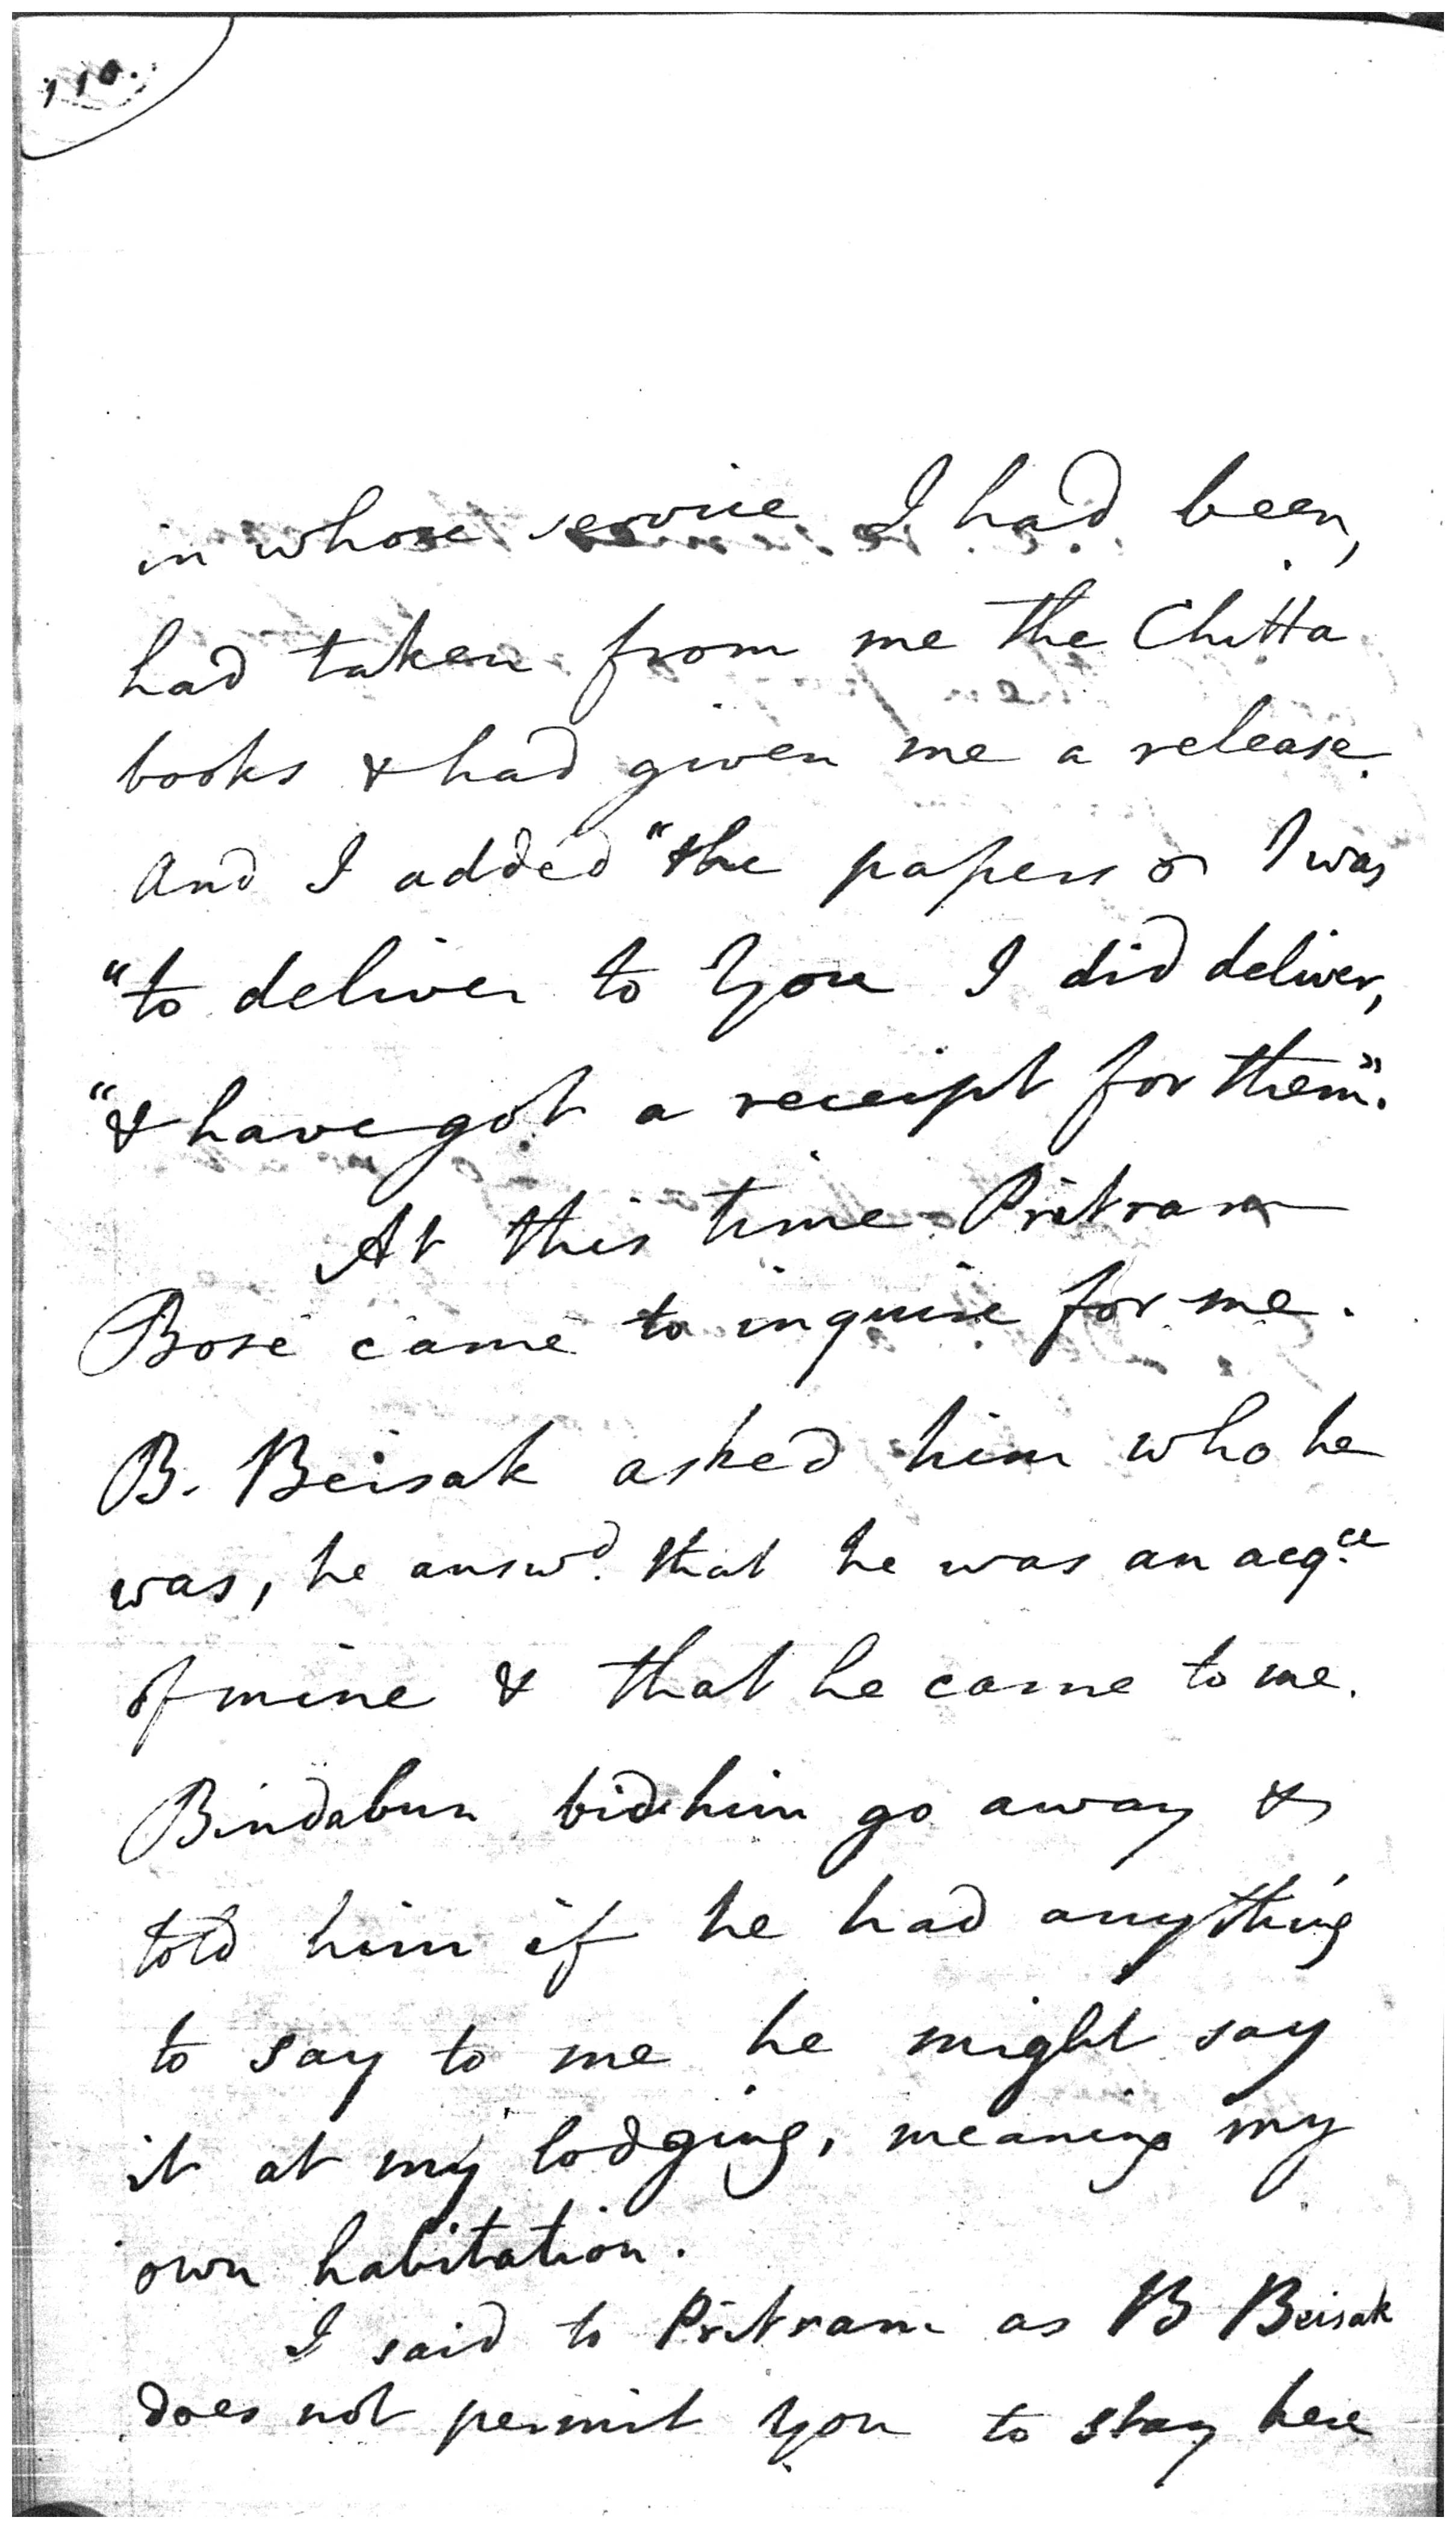 110.
in whose service I had been,
had taken from me the Chitta
books & had given me a release.
And I added "the papers I was
"to deliver to you I did deliver,
"& have got a receipt for them".
At this time Pritram
Bose came to inquire for me.
B. Beisak asked him who he
was, he answd. that he was an acqce
of mine & that he came to me.
Bindabun bid him go away &
told him if he had anything
to say to me he might say
it at my lodging, meaning my
own habitation.
I said to Pritram as B Beisak
does not permit you to stay here